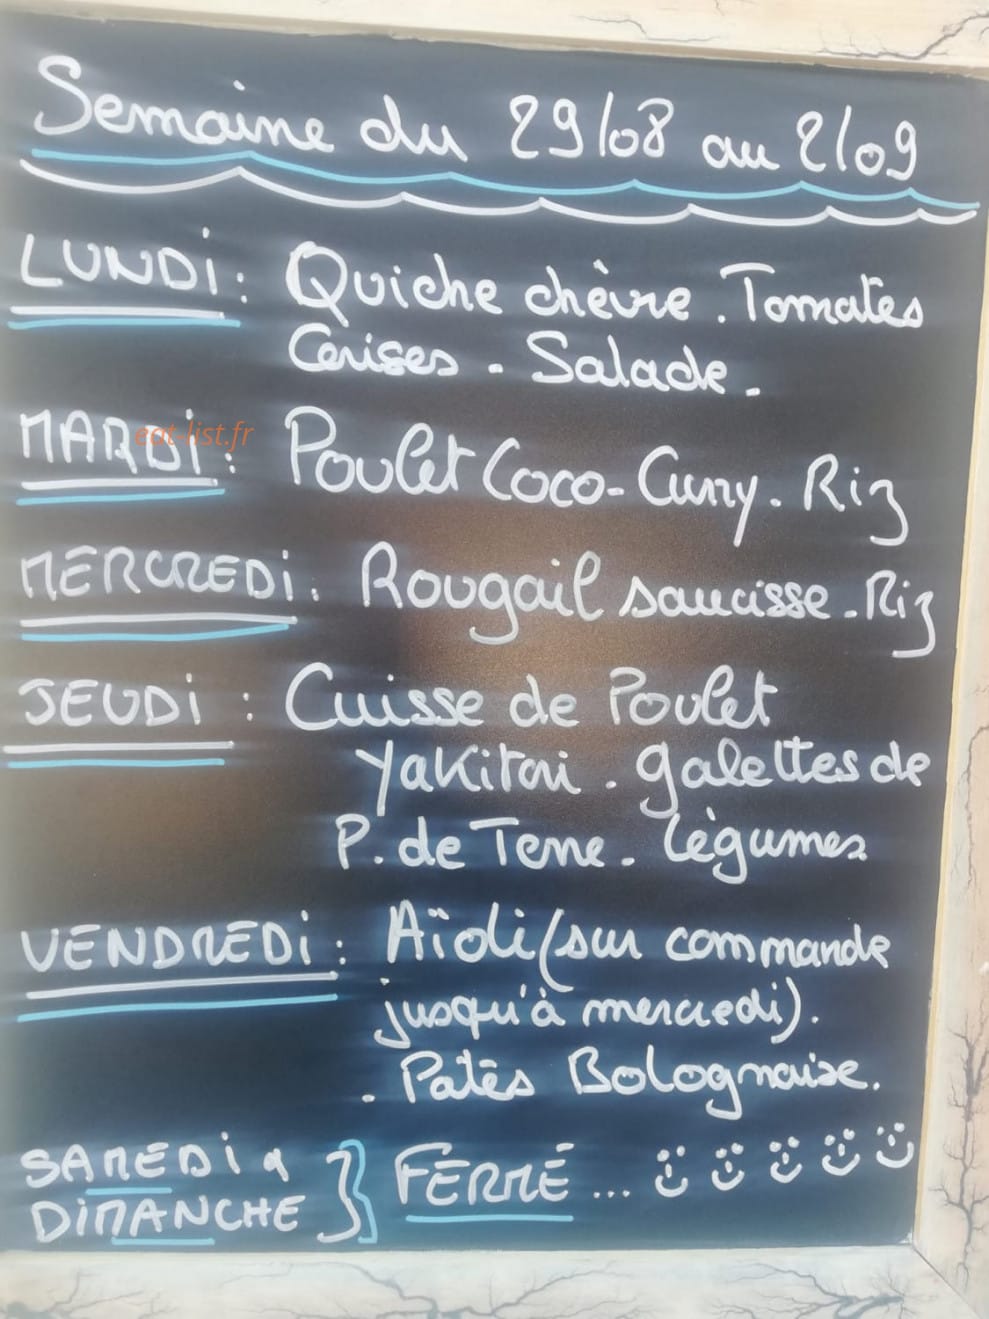 Semaine du 29/08 au 2/09
LUNDi : Quiche chèvre . Tomates
Cerises . Salade .
MARDi : Poulet Coco-Curry . Riz
eat-list.fr
MERCREDi : Rougail saucisse . Riz
JEUDi : Cuisse de Poulet
Yakitori . galettes de
P. de Terre . légumes
VENDREDi : Aïoli (sur commande
jusqu'à mercredi) .
. Patês Bolognaise .
SAMEDi &
DIMANCHE } FERMÉ ...